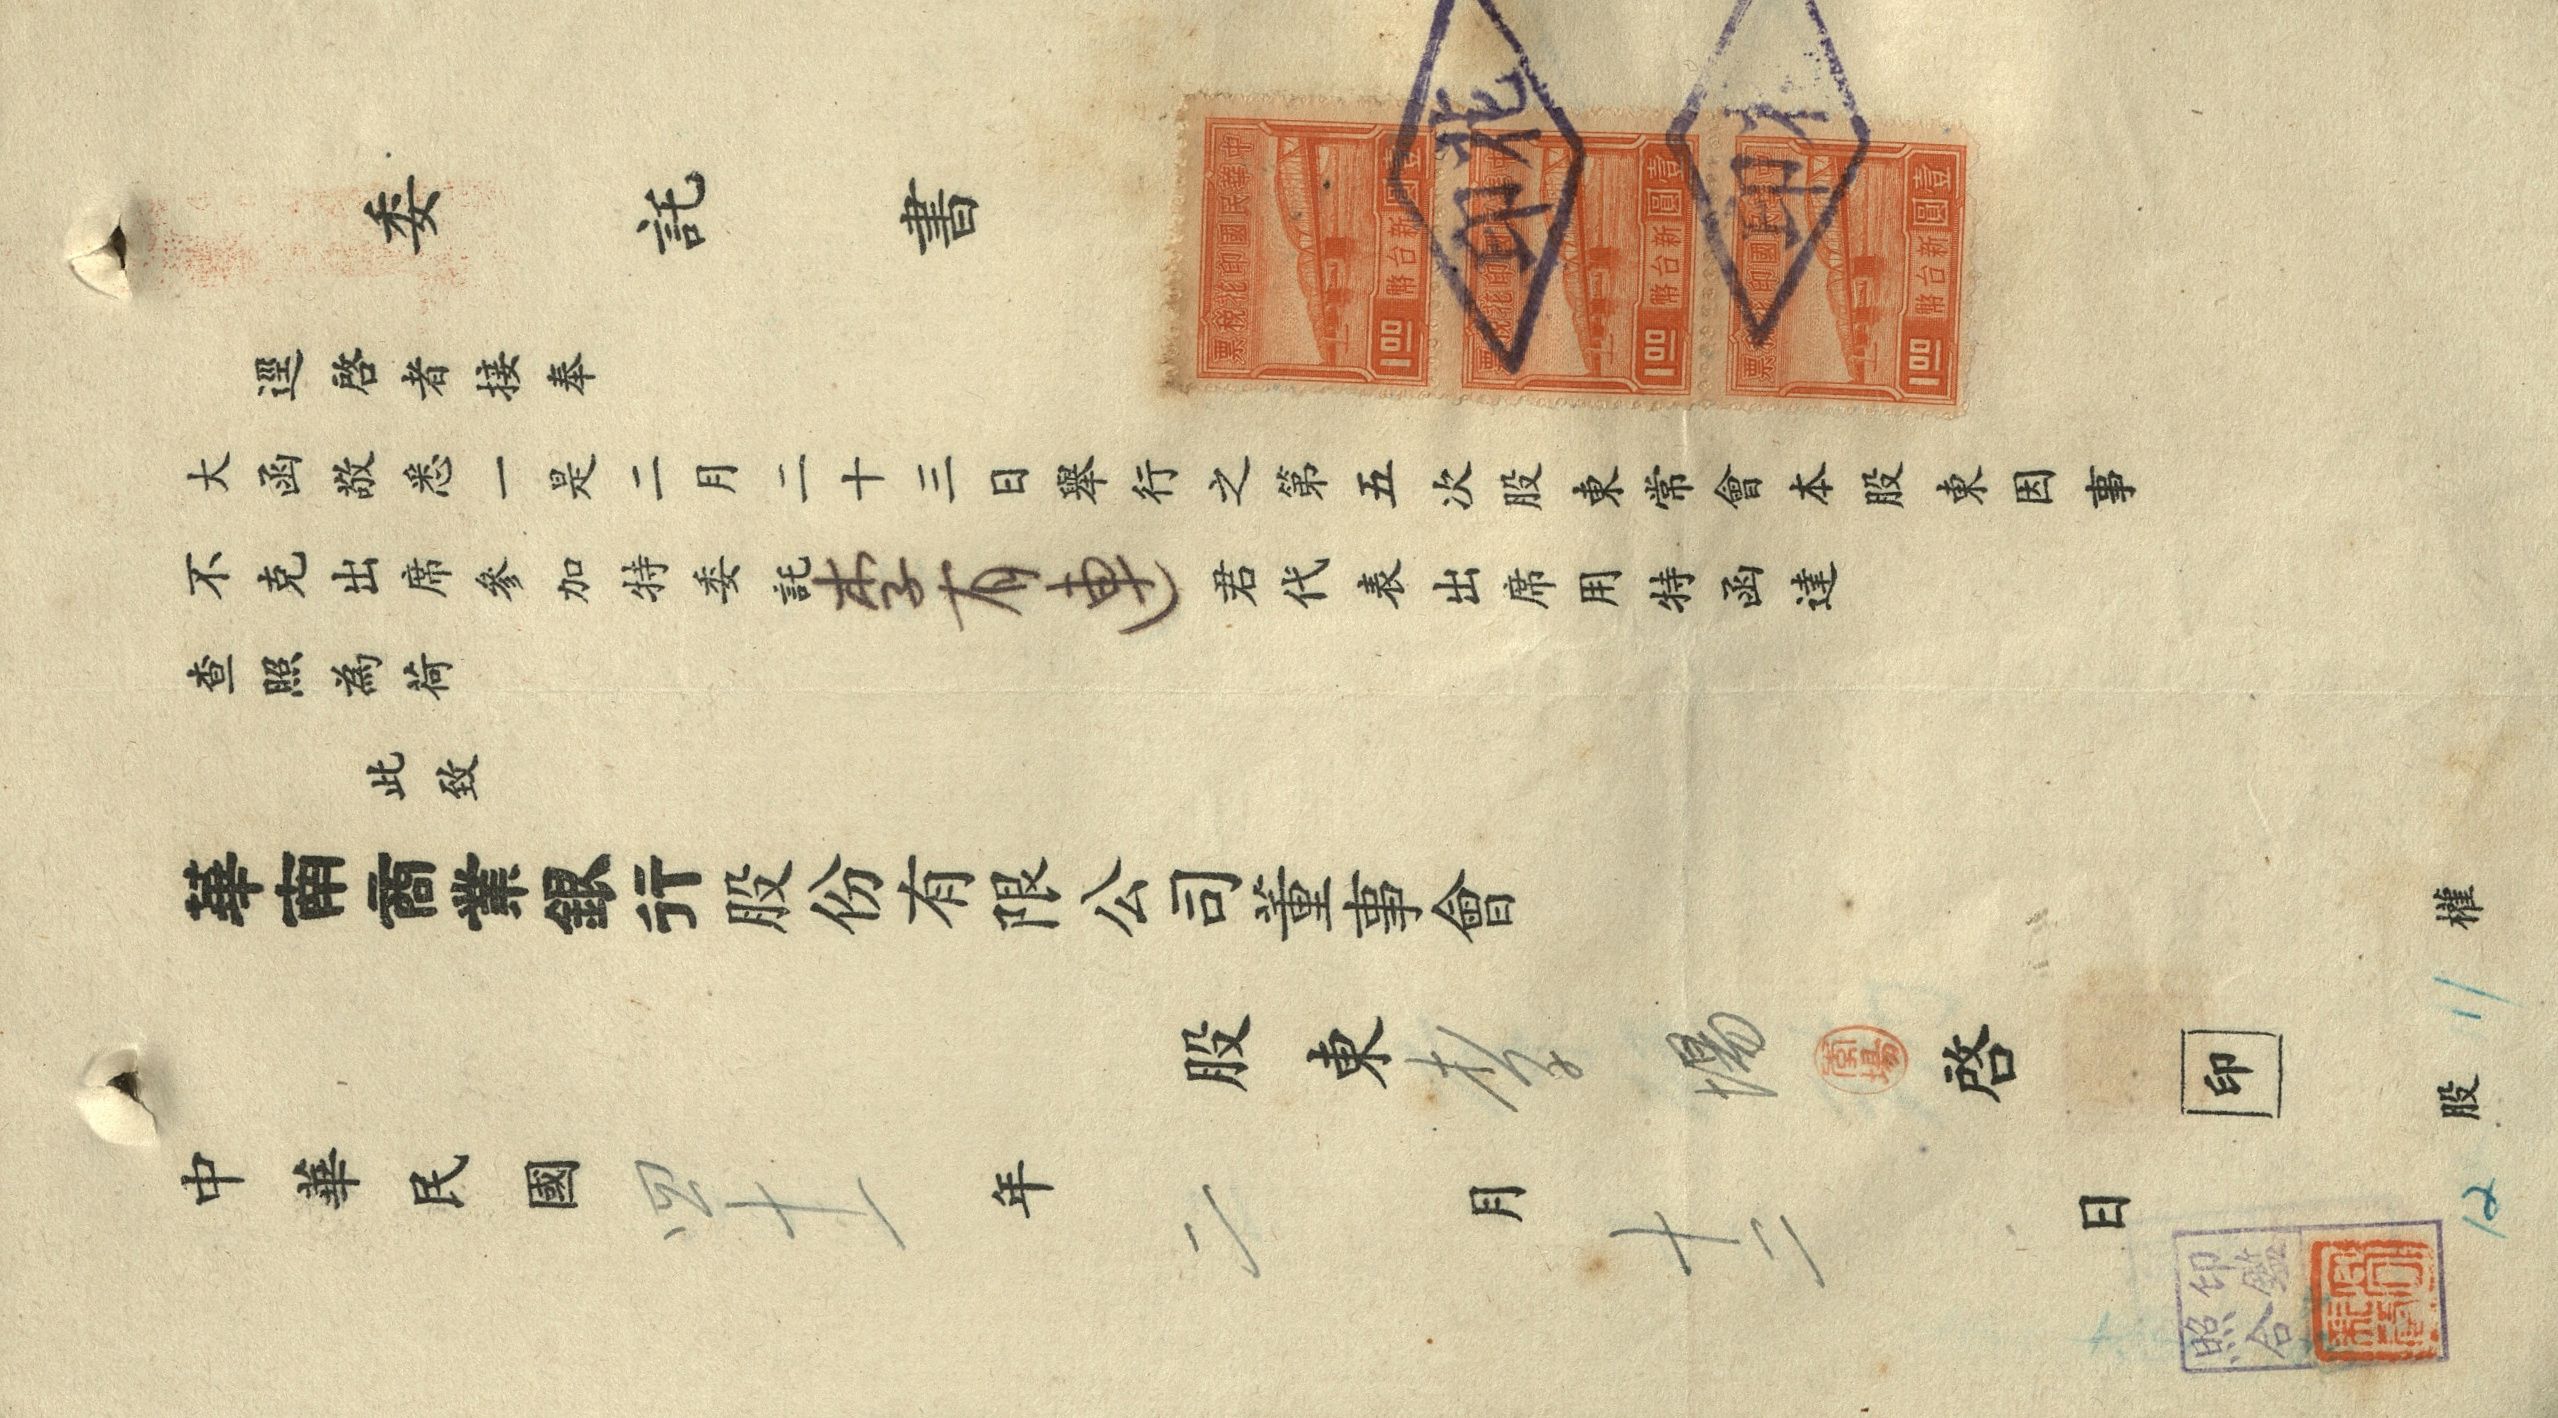 委託書
逕啓者接奉
大函敬悉一是二月二十三日舉行之第五次股東常會本股東因事
不克出席參加特委託李有連君代表出席用特函達
查照為荷
此致
華南商業銀行股份有限公司董事會
股東李場啓
印
中華民國四十一年二月十二日
12股11權
中華民國印花稅票
壹圓新台幣
1.00
中華民國印花稅票
壹圓新台幣
1.00
中華民國印花稅票
壹圓新台幣
1.00
印花
印花
印鑑
照合